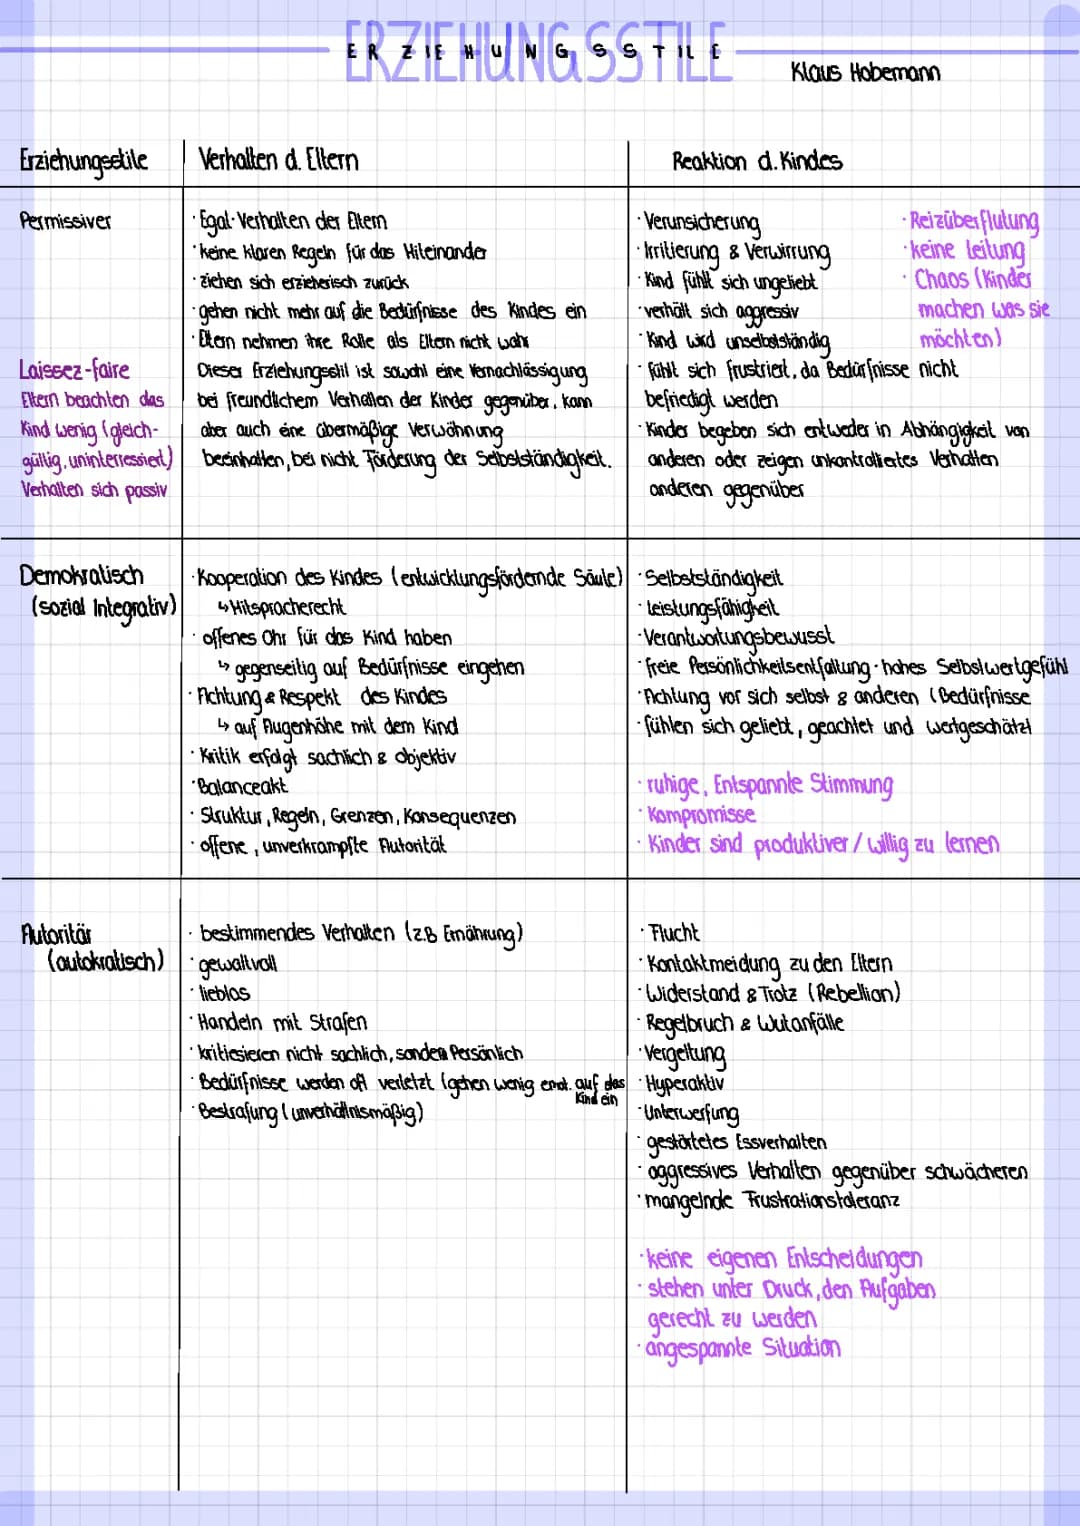 ERZIEHUNGSSTILE
ERZIEHUNGSSTILE
Klaus Hobemann
Erziehungsstile
Verhalten d. Eltern
Reaktion d. Kindes
Permissiver
Laissez-faire
Eltern beachten das
Kind wenig (gleich-
gültig, uninterressiert)
Verhalten sich passiv
· Egal-Verhalten der Eltern
· keine klaren Regeln für das Miteinander
· ziehen sich erzieherisch zurück
· gehen nicht mehr auf die Bedürfnisse des Kindes ein
· Eltern nehmen ihre Rolle als Eltern nicht wahr
Dieser Erziehungsstil ist sowohl eine Vernachlässigung
bei freundlichem Verhalten der Kinder gegenüber, kann
aber auch eine übermäßige Verwöhnung
beeinhalten, bei nicht Förderung der Selbstständigkeit.
· Verunsicherung
· Irritierung & Verwirrung
· Kind fühlt sich ungeliebt
· verhält sich aggressiv
· Kind wird unselbstständig
· fühlt sich frustriert, da Bedürfnisse nicht
befriedigt werden
· Kinder begeben sich entweder in Abhängigkeit von
anderen oder zeigen unkontrolliertes Verhalten
anderen gegenüber
· Reizüberflutung
· keine Leitung
· Chaos (Kinder
machen was sie
möchten)
Demokratisch
(sozial Integrativ)
· Kooperation des Kindes (entwicklungsfördernde Säule)
↳ Mitspracherecht
· offenes Ohr für das Kind haben
↳ gegenseitig auf Bedürfnisse eingehen
· Achtung & Respekt des Kindes
↳ auf Augenhöhe mit dem Kind
· Kritik erfolgt sachlich & objektiv
· Balanceakt
· Struktur, Regeln, Grenzen, Konsequenzen
· offene, unverkrampfte Autorität
· Selbstständigkeit
· Leistungsfähigkeit
· Verantwortungsbewusst
· freie Persönlichkeitsentfaltung · hohes Selbstwertgefühl
· Achtung vor sich selbst & anderen (Bedürfnisse
· fühlen sich geliebt, geachtet und wertgeschätzt
· ruhige, Entspannte Stimmung
· Kompromisse
· Kinder sind produktiver / willig zu lernen
Autoritär
(autokratisch)
· bestimmendes Verhalten (z.B Ernährung)
· gewaltvoll
· lieblos
· Handeln mit Strafen
· kritiesieren nicht sachlich, sondern Persönlich
· Bedürfnisse werden oft verletzt (gehen wenig emot. auf das
Kind ein
· Bestrafung (unverhältnismäßig)
· Flucht
· Kontaktmeidung zu den Eltern
· Widerstand & Trotz (Rebellion)
· Regelbruch & Wutanfälle
· Vergeltung
· Hyperaktiv
· Unterwerfung
· gestörtetes Essverhalten
· aggressives Verhalten gegenüber schwächeren
· mangelnde Frustrationstoleranz
· keine eigenen Entscheidungen
· stehen unter Druck, den Aufgaben
gerecht zu werden
· angespannte Situation